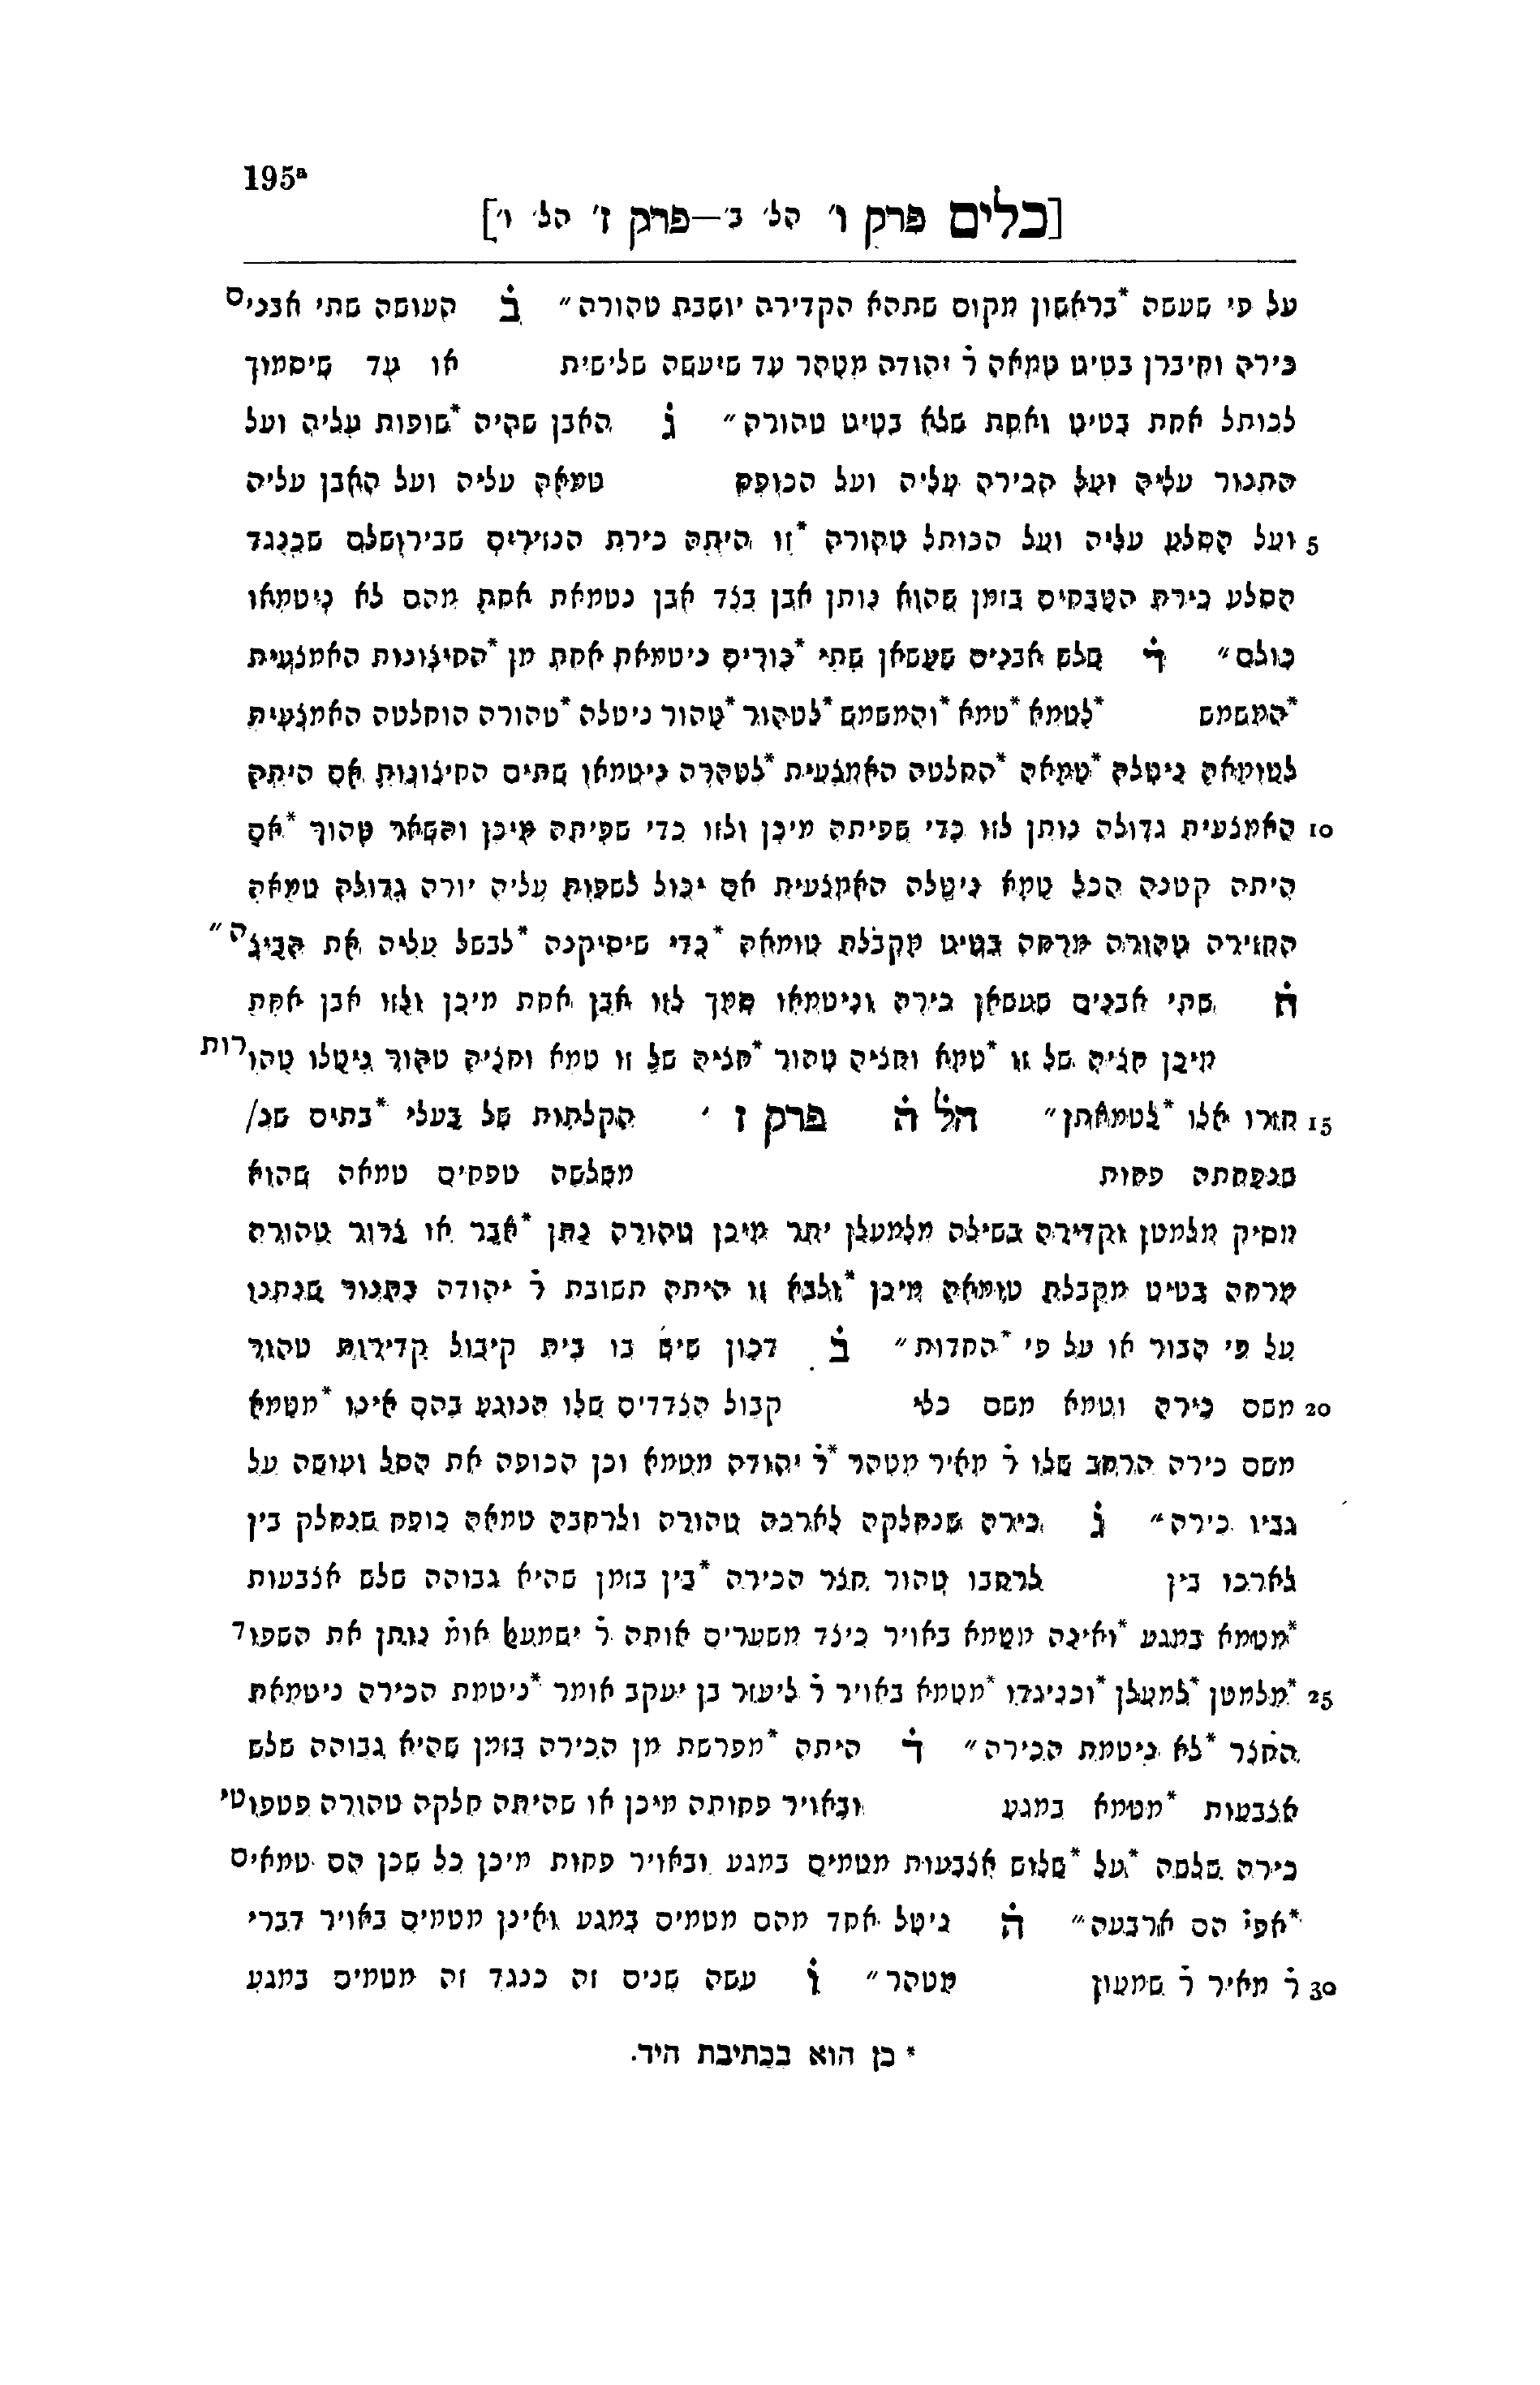 195ª
[כלים פרק ו' הל' ב'—פרק ז' הל' ו']
על פי שעשה *בראשון מקום שתהא הקדירה יושבת טהורה״ ב̇ העושה שתי אבנים
כירה וחיברן בטיט טמאה ר̇ יהודה מטהר עד שיעשה שלישית או עד שיסמוך
לכותל אחת בטיט ואחת שלא בטיט טהורה״ ג̇ האבן שהיה *שופות עליה ועל
התנור עליה ועל הכירה עליה ועל הכופח טמאה עליה ועל האבן עליה
5 ועל הסלע עליה ועל הכותל טהורה *זו היתה כירת הנזירים שבירושלם שכנגד
הסלע כירת הטבחים בזמן שהוא נותן אבן בצד אבן נטמאת אחת מהם לא ניטמאו
כולם״ ד̇ שלש אבנים שעשאן שתי *כורים ניטמאת אחת מן *החיצונות האמצעית
*המשמש *לטמא *טמא *והמשמש *לטהור *טהור ניטלה *טהורה הוחלטה האמצעית
לטומאה ניטלה *טמאה *החלטה האמצעית *לטהרה ניטמאו שתים החיצונות אם היתה
10 האמצעית גדולה נותן לזו כדי שפיתה מיכן ולזו כדי שפיתה מיכן והשאר טהור *אם
היתה קטנה הכל טמא ניטלה האמצעית אם יכול לשפות עליה יורה גדולה טמאה
החזירה טהורה מרחה בטיט מקבלת טומאה *כדי שיסיקנה *לבשל עליה את הביצה״
ה̇ שתי אבנים שעשאן כירה וניטמאו סמך לזו אבן אחת מיכן ולזו אבן אחת
מיכן חציה של זו *טמא וחציה טהור *חציה של זו טמא וחציה טהור ניטלו טהורות
15 חזרו אלו *לטמאתן״ הל̇ ה̇ פרק ז' הקלתות של בעלי *בתים שנ/
שנפחתה פחות משלשה טפחים טמאה שהוא
מסיק מלמטן וקדירה בשילה מלמעלן יתר מיכן טהורה נתן *אבר או צרור טהורה
מרחה בטיט מקבלת טומאה מיכן *ולבא זו היתה תשובת ר̇ יהודה בתנור שנתנו
על פי הבור או על פי *החדות״ ב̇ דכון שיש בו בית קיבול קדירות טהור
20 משם כירה וטמא משם כלי קבול הצדדים שלו הנוגע בהם אינו *מטמא
משם כירה הרחב שלו ר̇ מאיר מטהר *ר̇ יהודה מטמא וכן הכופה את הסל ועושה על
גביו כירה״ ג̇ כירה שנחלקה לארכה טהורה ולרחבה טמאה כופח שנחלק בין
לארכו בין לרחבו טהור חצר הכירה *בין בזמן שהיא גבוהה שלש אצבעות
*מטמא במגע *ואינה מטמא באויר כיצד משערים אותה ר̇ ישמעאל אומ̇ נותן את השפוד
25 *מלמטן *למעלן *וכניגדו *מטמא באויר ר̇ ליעזר בן יעקב אומר *ניטמת הכירה ניטמאת
החצר *לא ניטמת הכירה״ ד̇ היתה *מפרשת מן הכירה בזמן שהיא גבוהה שלש
אצבעות *מטמא במגע ובאויר פחותה מיכן או שהיתה חלקה טהורה פטפוטי
כירה שלשה *על *שלוש אצבעות מטמים במגע ובאויר פחות מיכן כל שכן הם טמאים
*אפי̇ הם ארבעה״ ה̇ ניטל אחד מהם מטמים במגע ואינן מטמים באויר דברי
30 ר̇ מאיר ר̇ שמעון מטהר״ ו̇ עשה שנים זה כנגד זה מטמים במגע
* כן הוא בכתיבת היד.